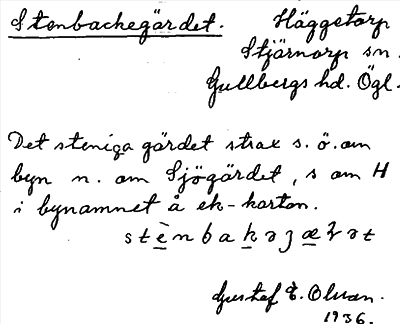 Stenbackegärdet.
Häggetorp
Stjärnorp sn.
Gullbergs hd. Ögl.
Det steniga gärdet strax s. ö. om
byn n. om Sjögärdet, s om H
i bynamnet å ek-kartan.
stènbakəȝæɽət
Gustaf E. Olsson.
1936.